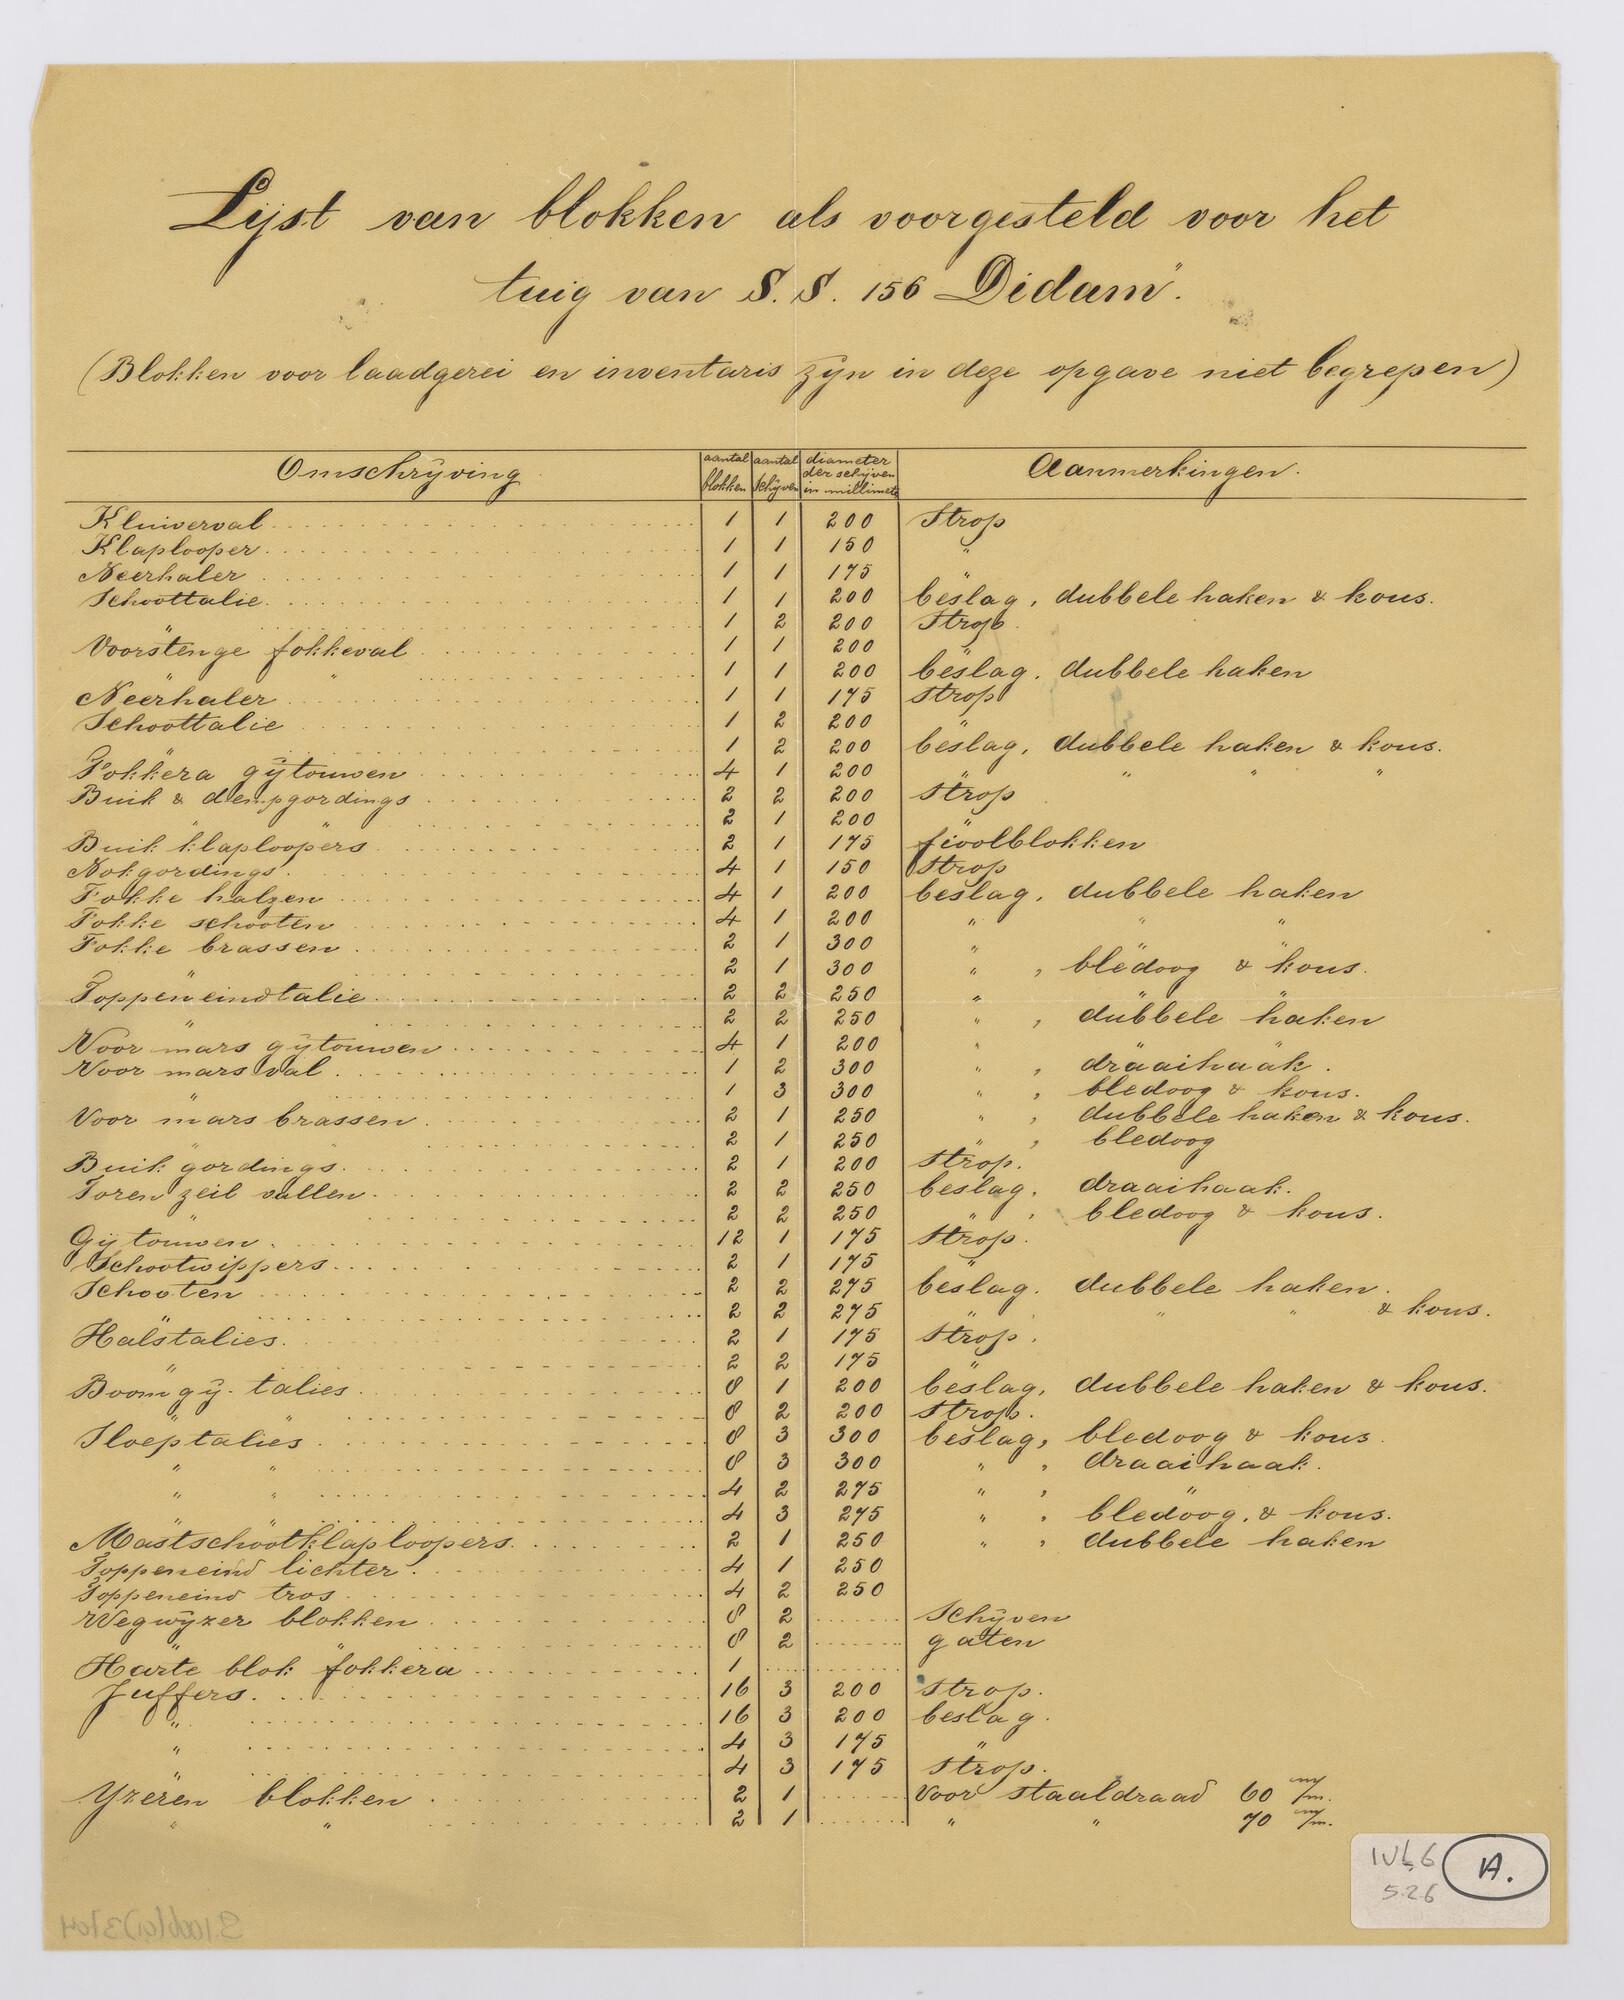 Lijst van blokken als voorgesteld voor het
tuig van S.S. 156 Didam".
(Blokken voor laadgerei en inventaris zijn in deze opgave niet begrepen)
Omschrijving aantal blokken aantal schijven diameter der schijven in millimeters Aanmerkingen.
Kluiverval 1 1 200 Strop
Klaplooper 1 1 150 "
Neerhaler 1 1 175 "
Schoottalie 1 1 200 beslag, dubbele haken & kous.
" 1 2 200 Strop.
Voorstenge fokkeval 1 1 200 "
" " 1 1 200 beslag, dubbele haken
Neerhaler 1 1 175 Strop
Schoottalie 1 2 200 "
" 1 2 200 beslag, dubbele haken & kous.
Fokkera gijtouwen 4 1 200 " " " "
Buik & dempgordings 2 2 200 Strop
" " 2 1 200 "
Buik klaploopers 2 1 175 fioolblokken
Nokgordings 4 1 150 Strop
Fokke halzen 4 1 200 beslag, dubbele haken
Fokke schooten 4 1 200 " " "
Fokke brassen 2 1 300 " " "
" 2 1 300 " , bledoog & kous.
Toppeneindtalie 2 2 250 " " "
" 2 2 250 " , dubbele haken
Voor mars gijtouwen 4 1 200 " " "
Voor mars val 1 2 300 " , draaihaak.
" 1 3 300 " , bledoog & kous.
Voor mars brassen 2 1 250 " , dubbele haken & kous.
" " 2 1 250 " , bledoog
Buik gordings 2 1 200 Strop.
Toren zeil vallen 2 2 250 beslag, draaihaak.
" 2 2 250 " , bledoog & kous.
Gijtouwen 12 1 175 Strop.
Schootwippers 2 1 175 "
Schooten 2 2 275 beslag. dubbele haken.
" 2 2 275 " " " & kous.
Halstalies 2 1 175 Strop.
" 2 2 175 "
Boom gij-talies 8 1 200 beslag, dubbele haken & kous.
" " 8 2 200 Strop.
Sloeptalies 8 3 300 beslag, bledoog & kous.
" " 8 3 300 " , draaihaak.
" " 4 2 275 " , "
" " 4 3 275 " , bledoog, & kous.
Mastschootklaploopers 2 1 250 " , dubbele haken
Toppeneind lichter 4 1 250
Toppeneind tros 4 2 250
Wegwijzer blokken 8 2 Schijven
" " 8 2 gaten
Harte blok fokkera 1
Juffers 16 3 200 Strop.
" 16 3 200 beslag.
" 4 3 175 "
" 4 3 175 Strop.
Yzeren blokken 2 1 voor staaldraad 60 m/m.
" " 2 1 " " 70 m/m.
IVL6
5.26
A.